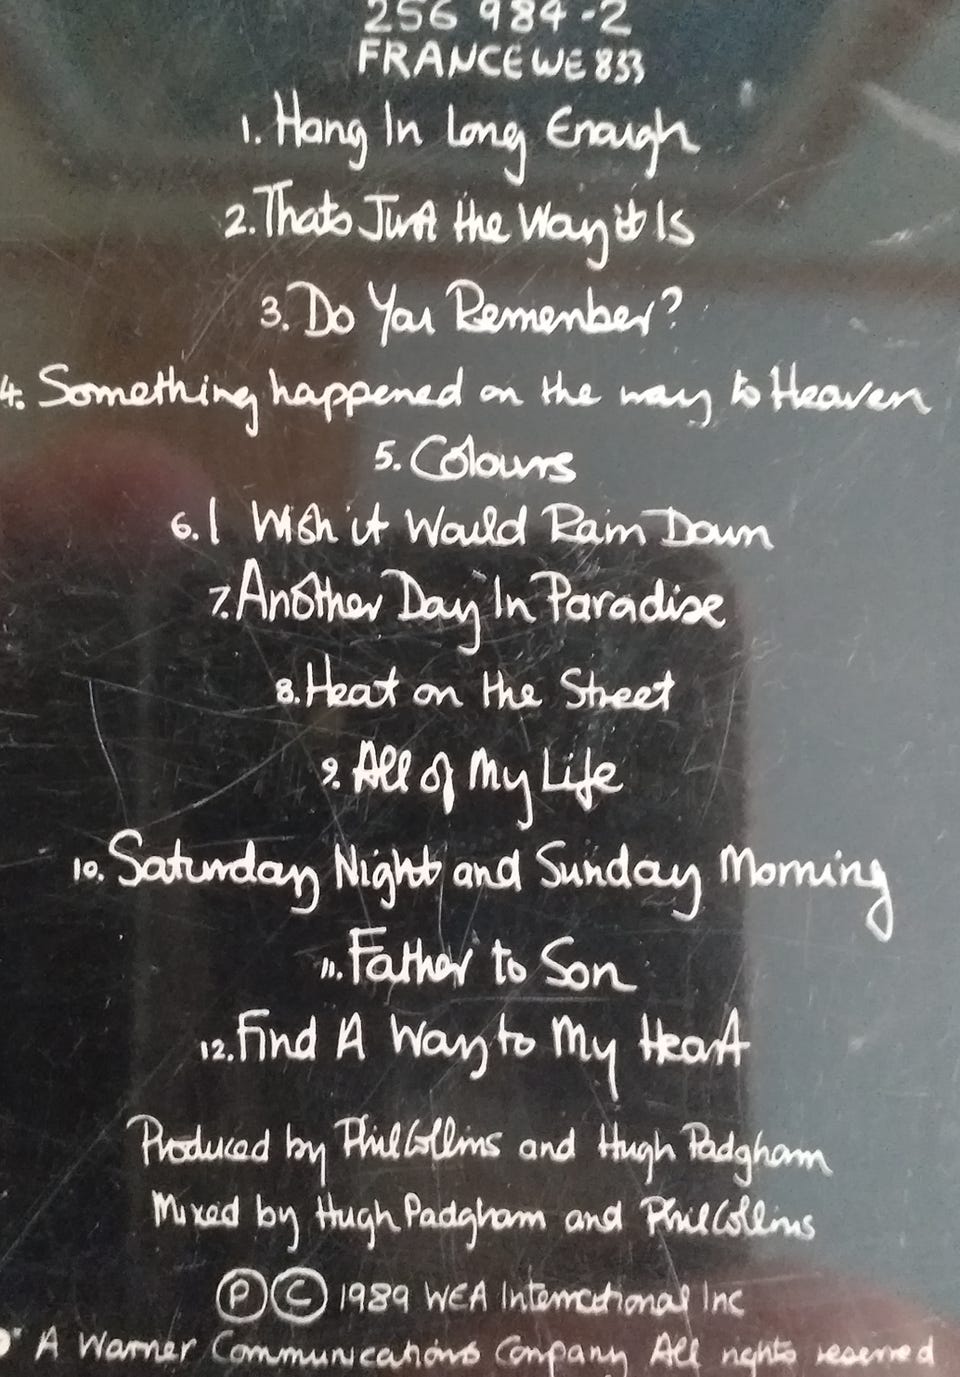 256 984-2
FRANCE WE 833
1. Hang In Long Enough
2. Thats Just the Way it Is
3. Do You Remember?
4. Something happened on the way to Heaven
5. Colours
6. I Wish it Would Rain Down
7. Another Day In Paradise
8. Heat on the Street
9. All of My Life
10. Saturday Night and Sunday Morning
11. Father to Son
12. Find A Way to My Heart
Produced by Phil Collins and Hugh Padgham
Mixed by Hugh Padgham and Phil Collins
Ⓟ © 1989 WEA International Inc
A Warner Communications Company All rights reserved